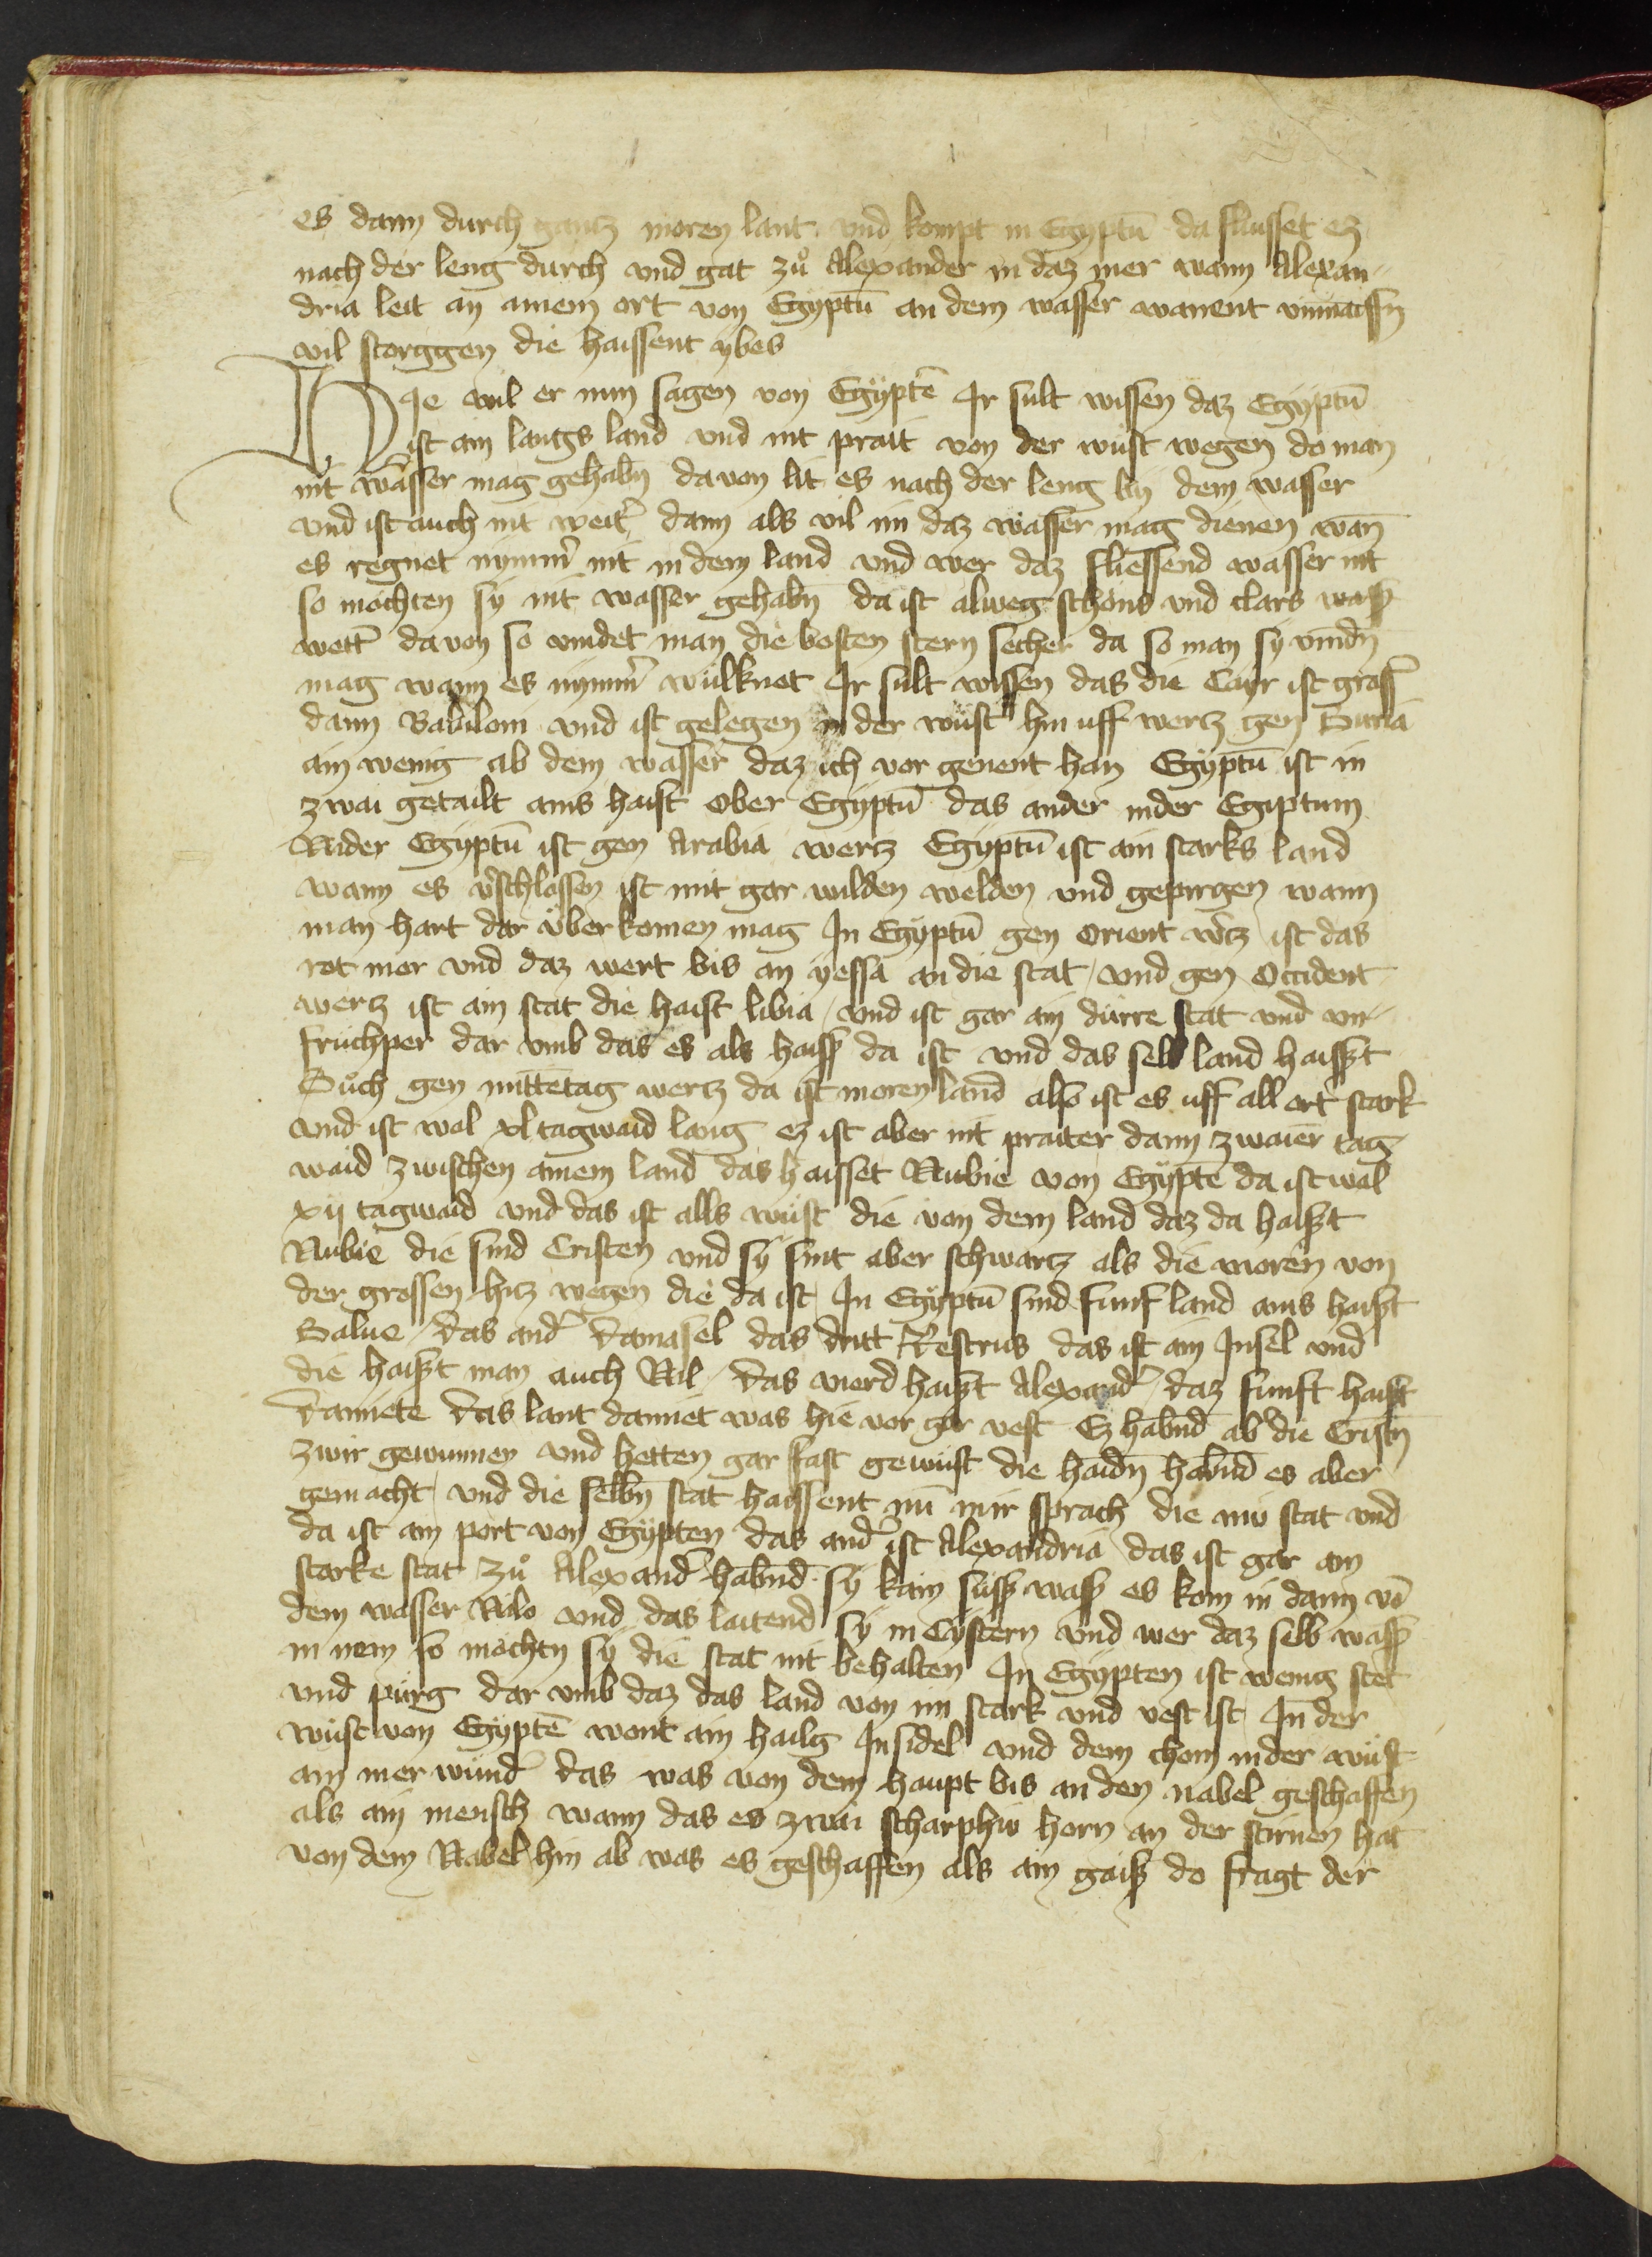 es dann durch gantz moren lant vnd kompt in Egyptū da flusset ez
nach der leng durch vnd gat zů Alexander in daz mer wann Alexan-
dria leit an ainem ort von Egyptū an dem wasser wanent vnmassn̄
vil storggen die haissent ybes
Hie wil er nun sagen von Egyptē Ir sult wissen daz Egyptū
ist ain langs land vnd nit prait von der wůst wegen do man
nit wasser mag gehabn̄ da von lit es nach der leng by dem wasser
vnd ist auch nit weit̄ dann als vil im daz wasser mag dienen wan̄
es regnet nymm̄ nit in dem land vnd wer daz fliessend wasser nit
so möchten sy nit wasser gehabn̄ da ist alweg schöns vnd clars wass̄
wett̄ da von so vindet man die besten stern secher da so man sy vindn̄
mag wann es nymm̄ wülknet Ir sult wissen das die Cayr ist gröss̄
dann Babiloni vnd ist gelegen in der wüst hin uff wertz gen Suria
ain wenig ab dem wasser daz ich vor genent han Egyptū ist in
zwai getailt ains haist Ober Egyptū das ander nider Egiptum
Nider Egyptū ist gen Arabia wertz Egyptū ist ain starks land
wann es v̄schlossen ist mit gar wilden welden vnd gepirgen wann
man hart dar über komen mag In Egyptū gen Orient w̄tz ist das
rot mer vnd daz wert bis an yessa an die stat / vnd gen Occident
wertz ist ain stat die haist libia / vnd ist gar ain dürre stat vnd vn-
früchper dar vmb das es als haiss da ist vnd das selb land haisst
Düch gen mittētag wertz da ist moren land also ist es uff all ort stark
vnd ist wol xl tagwaid lang ez ist aber nit praiter dann zwaier tag-
waid zwischen ainem land das haisset Nubie von Egypte da ist wol
xij tagwaid vnd das ist alls wüst die von dem land daz da haisst
Nubie die sind Cristen vnd sy sint aber schwartz als die moren von
der grossen hitz wegen die da ist / In Egyptū sind funf land ains haisst
Salue / das and̄ damasel das dritt Restrus das ist ain Insel vnd
die haisst man auch Nil / das vierd haisst Alexand̄ / daz funft haisst
damiete das lant damiet was hie vor gar vest Ez habn̄d ab̄ die Cristn̄
zwir gewunnen vnd hetten gar fast gewüst die haidn̄ habn̄d es aber
gemacht / vnd die selbn̄ stat haissent nū mir sprach die niw stat vnd
da ist ain port von Egypten das and̄ ist Alexandria das ist gar ain
starke stat zů Alexand̄ habn̄d sy kain süss wass̄ es kom in dann vō
dem wasser Nilo vnd das laitend sy in Cystern vnd wer daz selb wass̄
in nem so möchtn̄ sy die stat nit behalten In Egypten ist wenig stet
vnd pürg dar vmb daz das land von im stark vnd vest ist In der
wüst von Egyptē wont ain hailg Insidel vnd dem chom in der wüst
ain mer wund̄ das was von dem haupt bis an den nabel geschaffen
als ain mensch wann das es zwai scharphiu horn an der stirnen hat
von dem Nabel hin ab was es geschaffen als ain gaiss do fragt der